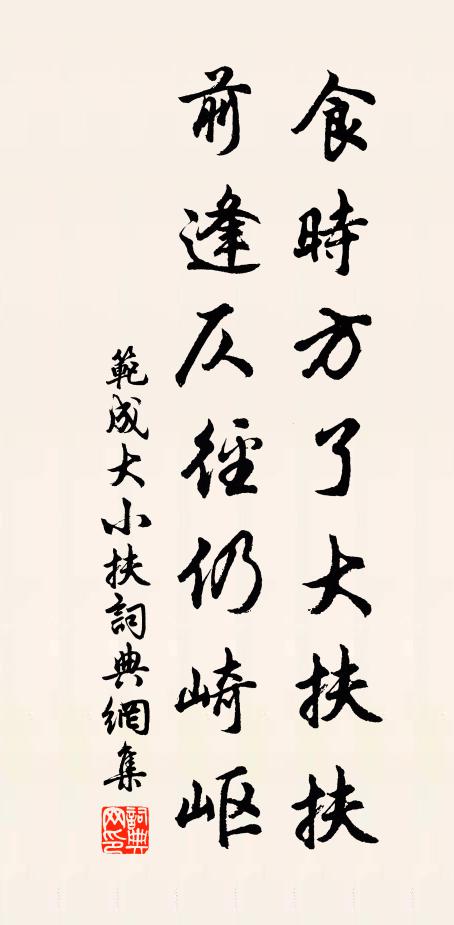 食時方了大扶扶
前逢仄徑仍崎岖
範成大小扶詞典網集
詞典网印